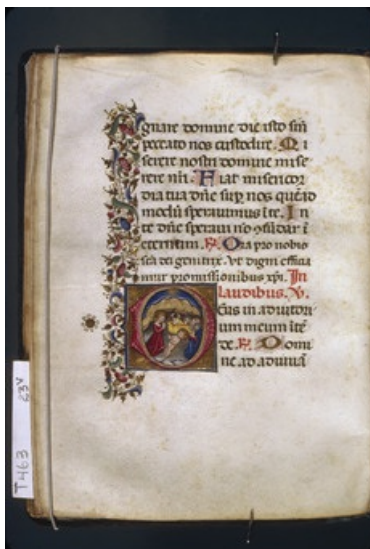 gnare domine die isto sin
peccato nos custodire. Mi
serere nostri domine mise
rere nrī. Fiat misericor
dia tua dn̄e sup nos quēad
modū speravimus ī te. In
te dn̄e speravi nō 9fūdar ī
eternum. R. Ora pro nobis
sc̄a dei genitrix. Vt digni effica
mur promissionibus xp̄i. In
laudibus. V.
Deus in adiutori
um meum īte
de. R. Domi
ne ad adiuvā
T463 23v